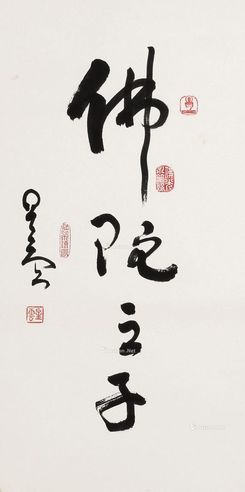 佛陀之子
星雲